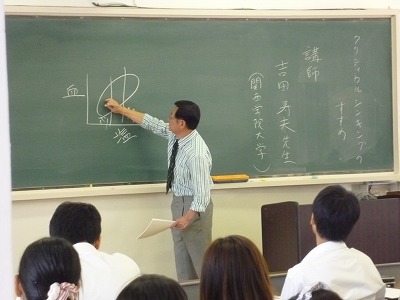 クリシンクル シンキングの
すすめ
講師
吉田 寿夫 先生
(関西学院大学)
血
塩